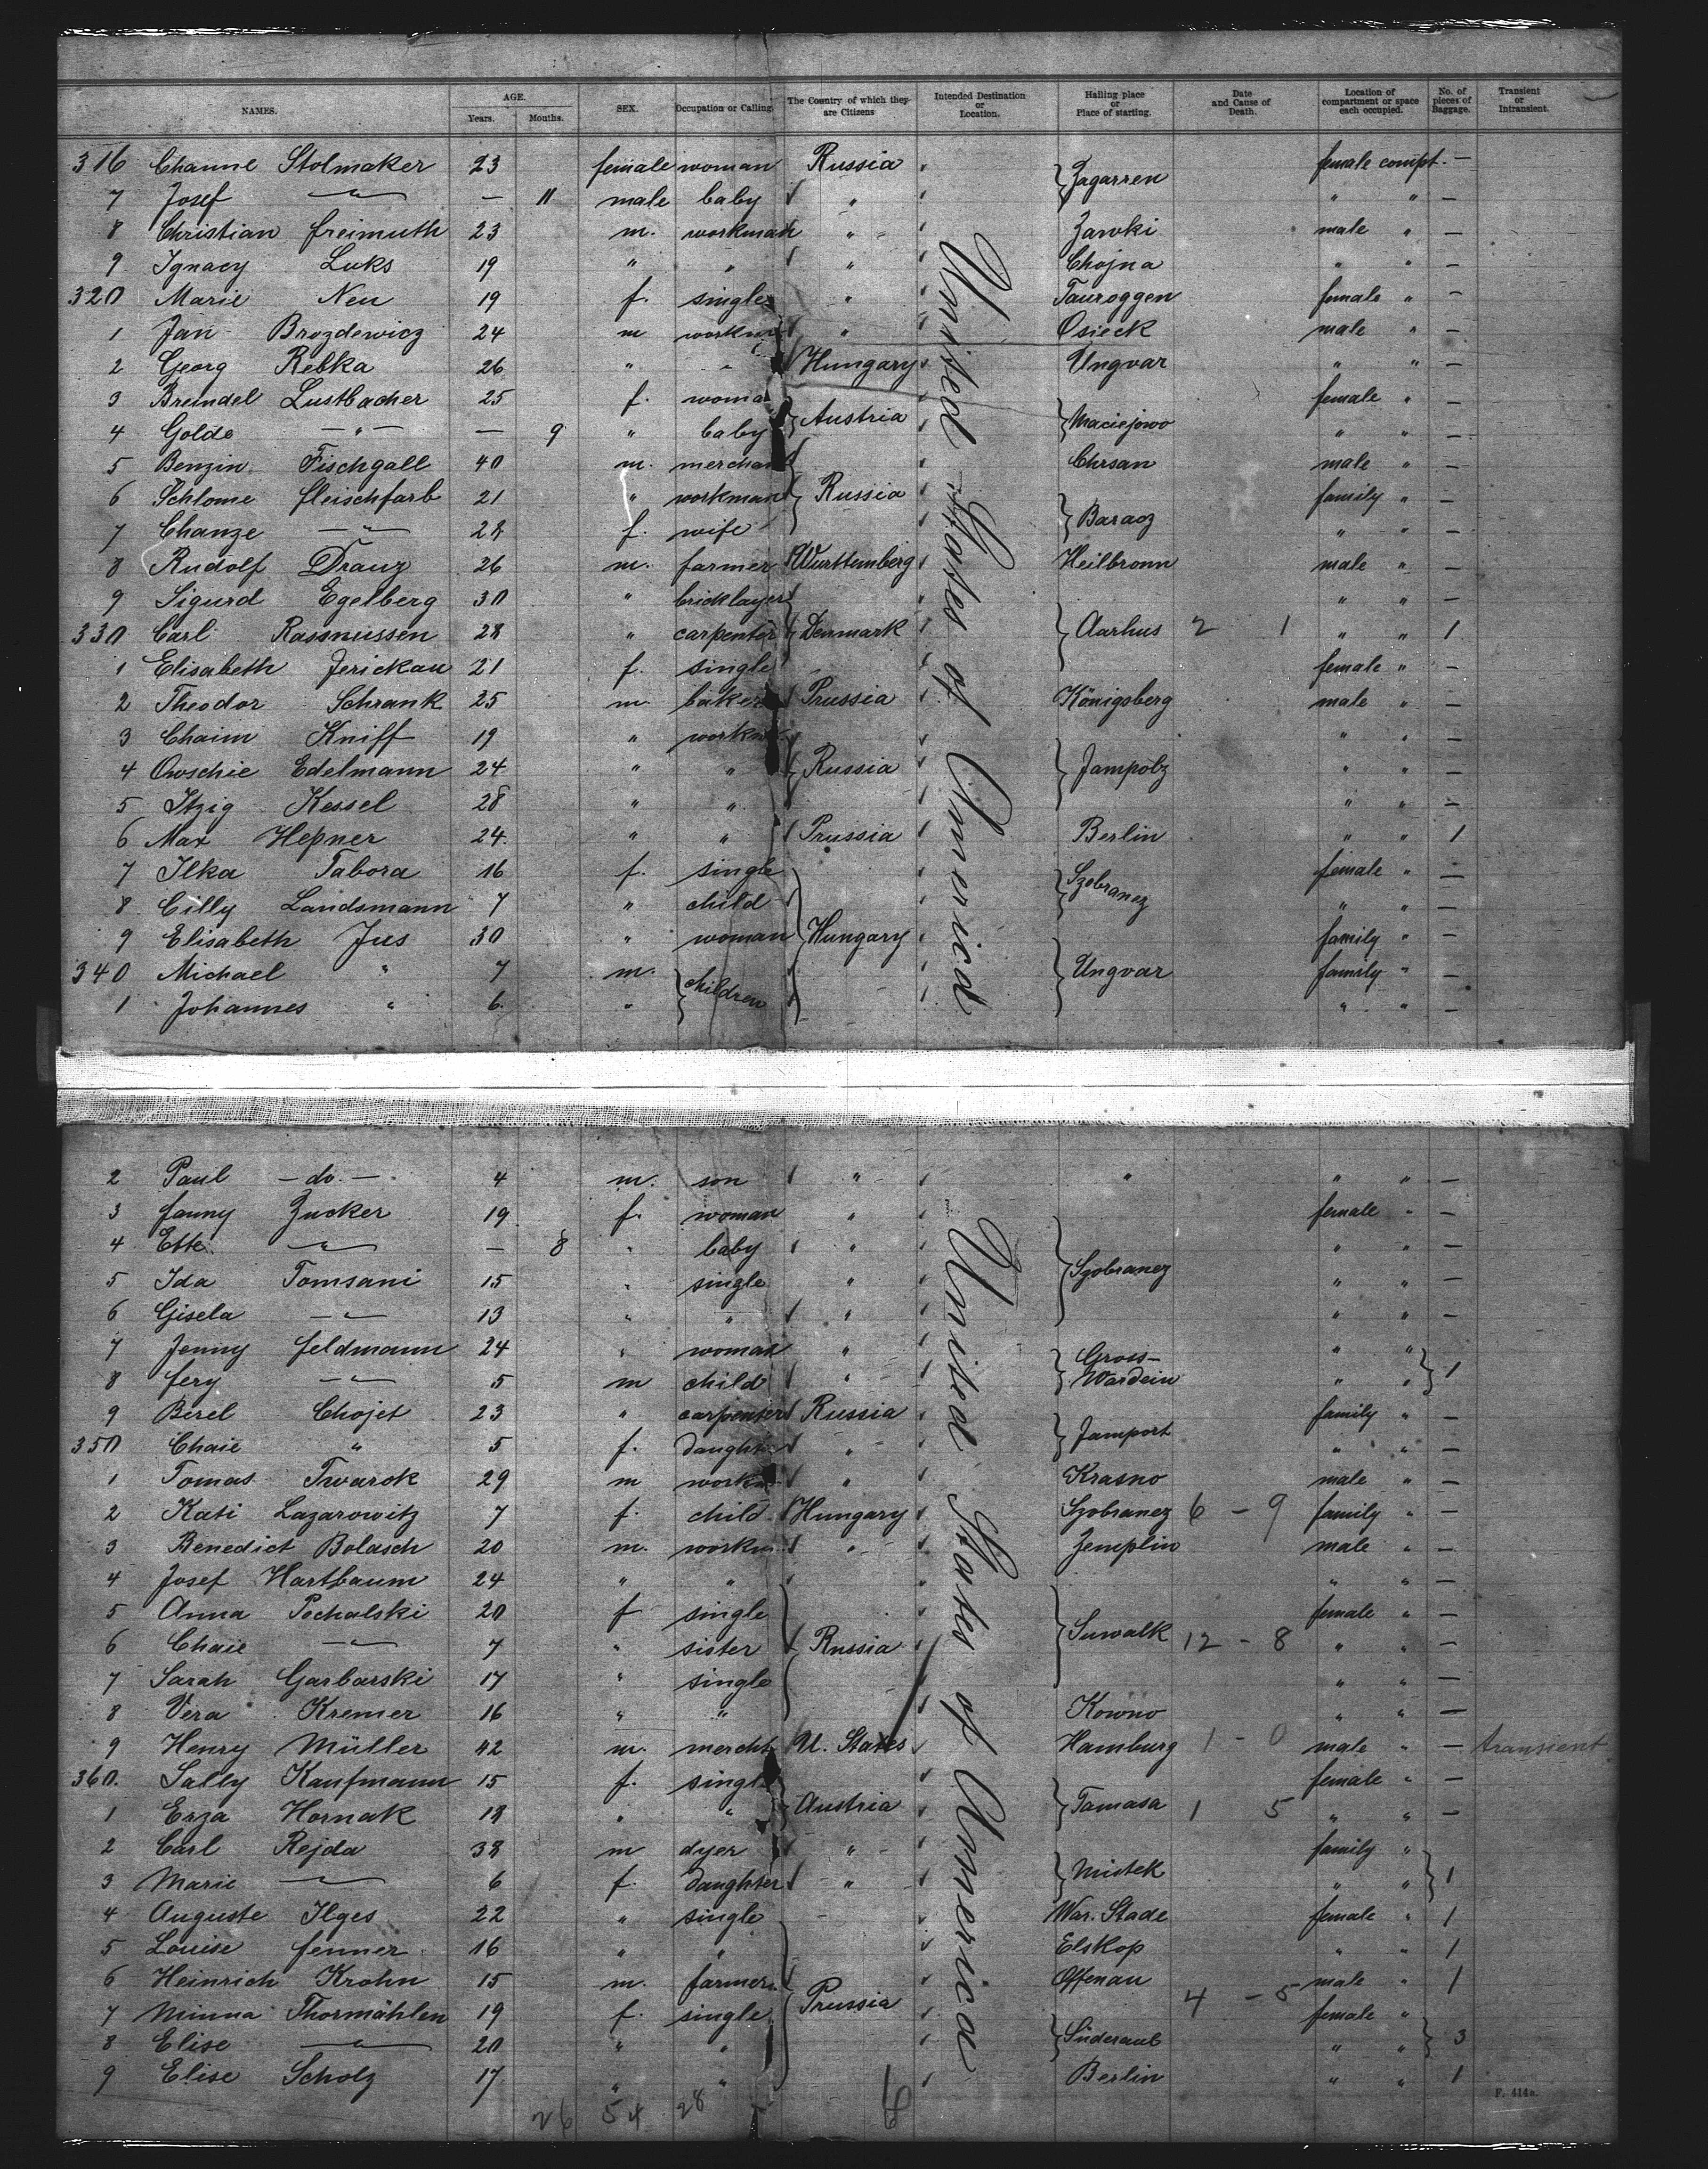 NAMES. AGE. Years. Months. SEX. Occupation or Calling. The Country of which they are Citizens Intended Destination or Location. Halling place or Place of starting. Date and Cause of Death. Location of compartment or space each occupied. No. of pieces of Baggage. Transient or Intransient.
316 Channe Stolmaker 23 female woman Russia } Zagarren female compt. —
7 Josef —"— — 11 male baby " " " —
8 Christian Freimuth 23 m. workman " Zawki male " —
9 Ignacy Luks 19 " " " Chojna " " —
320 Marie Neu 19 f. single " Tauroggen female " —
1 Jan Brozdewicz 24 m workm " Osieck male " —
2 Georg Rebka 26 " " Hungary Ungvar " " —
3 Breindel Lustbacher 25 f. woma } Austria } Maciejowo female " —
4 Golde —"— — 9 " baby " " —
5 Benzin Fischgall 40 m. merchant Chrsan male " —
6 Schlome Fleischfarb 21 " workman } Russia } Baracz family " —
7 Chanze —"— 28 f. wife " " —
8 Rudolf Drauz 26 m. farmer Württemberg Heilbronn male " —
9 Sigurd Egelberg 30 " bricklayer " " —
330 Carl Rassmussen 28 " carpenter } Denmark } Aarhus 2 1 " " 1
1 Elisabeth Jerickau 21 f. single female " —
2 Theodor Schrank 25 m baker Prussia Königsberg male " —
3 Chaim Kniff 19 " workm " " —
4 Owschie Edelmann 24 " " } Russia } Jampolz " " —
5 Itzig Kessel 28 " " " " —
6 Max Hepner 24 " " Prussia Berlin " " 1
7 Ilka Tabora 16 f. single } Szobranez female " —
8 Cilly Landsmann 7 " child " " —
9 Elisabeth Jus 30 " woman } Hungary family " —
340 Michael " 7 m. } children } Ungvar family " —
1 Johannes " 6 " " " —
United States of America
2 Paul —do.— 4 m. son " " " " —
3 Fanny Zucker 19 f. woman " female " —
4 Ette —"— — 8 " baby " " " —
5 Ida Tomsani 15 " single " } Szobranez " " —
6 Gisela —"— 13 " " " " " —
7 Jenny Feldmann 24 " woman " } Gross-Wardein " " } 1
8 Fery —"— 5 m child " " "
9 Berel Chojet 23 " carpenter Russia } Jamport family " —
350 Chaie " 5 f. daught " " " —
1 Tomas Twarok 29 m workm " Krasno male " —
2 Kati Lazarowitz 7 f. child Hungary Szobranez 6 - 9 family " —
3 Benedict Bolasch 20 m. workm " Zemplin male " —
4 Josef Hartbaum 24 " " " " —
5 Anna Pochalski 20 f single female " —
6 Chaie —"— 7 " sister } Russia } Suwalk 12 - 8 " " —
7 Sarah Garbarski 17 " single " " —
8 Vera Kremer 16 " " Kowno " " —
9 Henry Müller 42 m. mercht U. States Hamburg 1 - 0 male " — transient
360. Sally Kaufmann 15 f. singl female " —
1 Erza Hornak 18 " " } Austria } Tamasa 1 5 " " —
2 Carl Rejda 38 m dyer " } Mistek family " } 1
3 Marie —"— 6 f. daughter " " "
4 Auguste Ilges 22 " single War. Stade female " 1
5 Louise Fenner 16 " " Elskop " " 1
6 Heinrich Krohn 15 m. farmer Offenau male " 1
7 Minna Thormählen 19 f. single } Prussia 4 - 5 female "
8 Elise —"— 20 " " } Süderaub " " } 3
9 Elise Scholz 17 " " Berlin " " 1
United States of America
26 54 28
F. 414a.